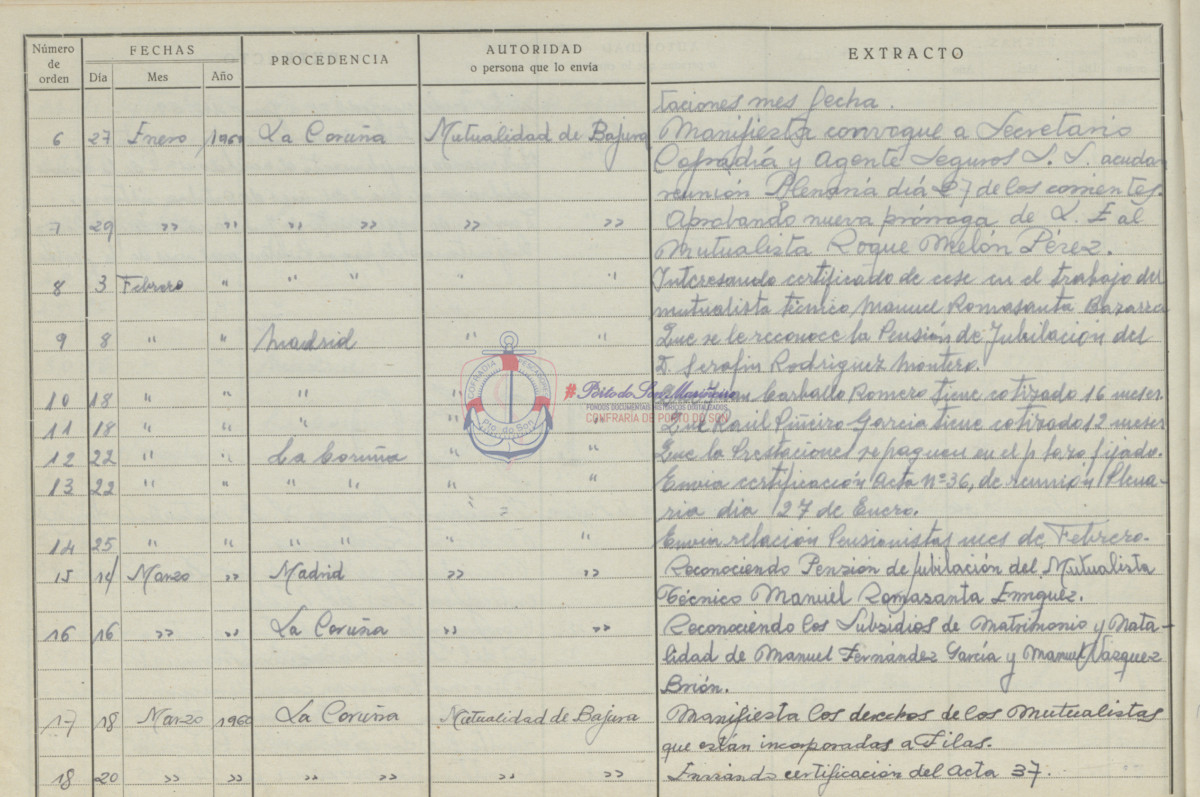 Número de orden FECHAS PROCEDENCIA AUTORIDAD o persona que lo envía EXTRACTO
Día Mes Año
taciones mes fecha.
6 27 Enero 1960 La Coruña Mutualidad de Bajura Manifiesta convoque a Secretario
Cofradía y Agente Seguros S. S. acudan
reunión Plenaria día 27 de los corrientes.
7 29 " " " " " " Aprobando nueva prórroga de L. E al
Mutualista Roque Melón Pérez.
8 3 Febrero " " " " " Interesando certificado de cese en el trabajo del
mutualista técnico, Manuel Romasanta
9 8 " " Madrid " " Que se le reconoce la Pensión de Jubilación del
D. Serafin Rodriguez Montero.
10 18 " " " " Carballo Romero tiene cotizado 16 meses.
11 18 " " " " Que Raúl Piñeiro García tiene cotizado 12 meses
12 22 " " La Coruña " " Que la Prestaciones se paguen en el plazo fijado.
13 22 " " " " " " Envia certificación Acta Nº 36, de reunión Plena-
ria dia 27 de Enero.
14 25 " " " " " " Envia relación Pensionistas mes de Febrero.
15 14 Marzo " Madrid " " Reconociendo Pensión de jubilación del Mutualista
Técnico Manuel Romasanta Enriquez.
16 16 " " La Coruña " " Reconociendo los Subsidios de Matrimonio y Nata-
lidad de Manuel Fernández García y Manuel Vázquez
Brión.
17 18 Marzo 1960 La Coruña Mutualidad de Bajura Manifiesta los derechos de los Mutualistas
que están incorporadas a Filas.
18 20 " " " " " " Enviando certificación del Acta 37.
COFRADIA PESCADORES
Pto. do Son
#Porto do Son Mariñeiro
FONDOS DOCUMENTAIS HISTÓRICOS DIGITALIZADOS
CONFRARÍA DE PORTO DO SON